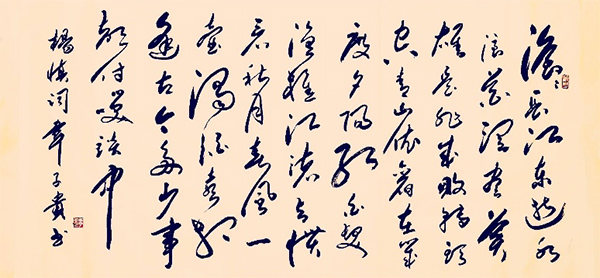 滚滚长江东逝水
浪花淘尽英
雄是非成败转头
空青山依旧在几
度夕阳红白发
渔樵江渚上惯
看秋月春风一
壶浊酒喜相
逢古今多少事
都付笑谈中
杨慎词韦子贵书